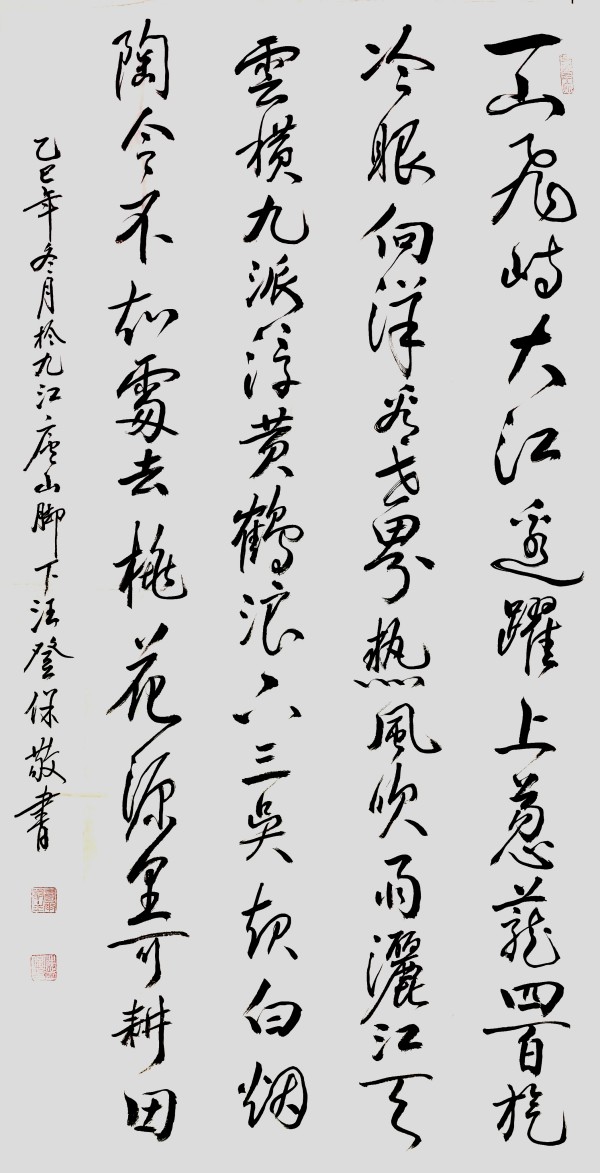 一山飛峙大江邊躍上蔥蘢四百旋
冷眼向洋看世界熱風吹雨灑江天
雲橫九派浮黃鶴浪下三吳起白烟
陶令不知處去桃花源里可耕田
乙巳年冬月於九江廬山脚下汪登保敬書